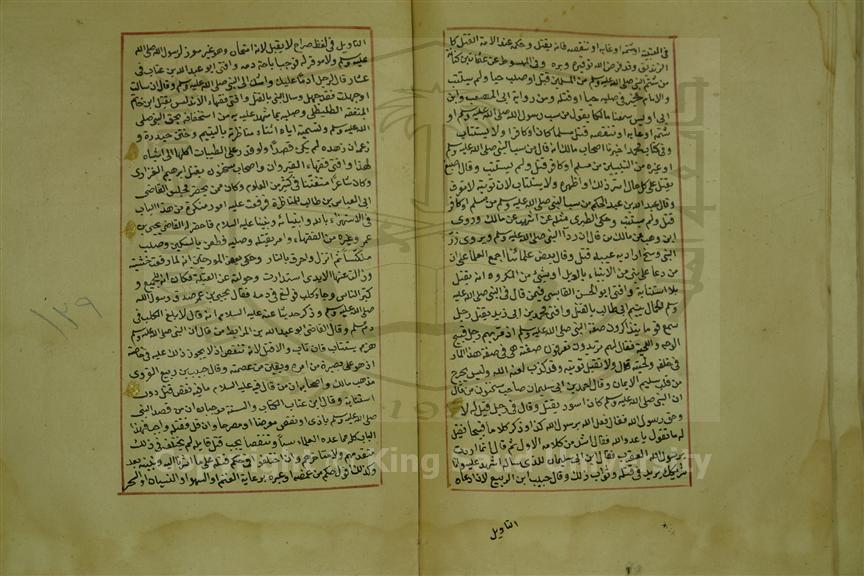 في العتبية او شتمه او عابه او تنقصه فانه يقتل وحكمه عند الامة القتل كا
لزنديق وقد فرض الله توقيره وبره وفي المبسوط عن عثمان بن كنانة
من شتم النبي صلى الله عليه وسلم من المسلمين قتل او صلب حيا ولم يستتب
والامام مخير في صلبه حيا او قتله ومن رواية ابي المصعب وابن
ابي اويس سمعنا مالكا يقول من سب رسول الله صلى الله عليه وسلم او
شتمه او عابه او تنقصه قتل مسلما كان او كافرا ولا يستتاب
وفي كتاب محمد اخبرنا اصحاب مالك انه قال من سب النبي صلى الله عليه وسلم
او غيره من النبيين من مسلم او كافر قتل ولم يستتب وقال اصبغ
يقتل على كل حال اسر ذلك او اظهره ولا يستتاب لان توبته لا تعرف
وقال عبد الله بن عبد الحكم من سب النبي صلى الله عليه وسلم من مسلم او كافر
قتل ولم يستتب وحكى الطبري مثله عن اشهب عن مالك وروى
ابن وهب عن مالك من قال ان ردآ النبي صلى الله عليه وسلم ويروى زر
النبي وسخ اراد به عيبه قتل وقال بعض علمائنا اجمع العلماء على ان
من دعا على نبي من الانبياء بالويل او بشئ من المكروه انه يقتل
بلا استتابة وافتى ابو الحسن القابسي فيمن قال في النبي صلى الله عليه
وسلم الحمال يتيم ابي طالب بالقتل وافتى محمد بن ابي زيد بقتل رجل
سمع قوما يتذاكرون صفة النبي صلى الله عليه وسلم اذ مر بهم رجل قبيح
الوجه واللحية فقال لهم تريدون تعرفون صفته هي في صفة هذا المار
في خلقه ولحيته قال ولا تقبل توبته وقد كذب لعنه الله وليس يخرج
من قلب سليم الايمان وقال احمد بن ابي سليمان صاحب سحنون من قال
ان النبي صلى الله عليه وسلم كان اسود يقتل وقال في رجل قيل له لا
وحق رسول الله فقال فعل الله برسول الله كذا وذكر كلاما قبيحا فقيل
له ما تقول يا عدو الله فقال اشد من كلامه الاول ثم قال انما اردت
برسول الله العقرب فقال ابن ابي سليمان للذي ساله اشهد عليه وانا
شريكك يريد في قتله وثواب ذلك وقال حبيب ابن الربيع لان ادعاه
التاويل
التاويل في لفظ صراح لا يقبل لانه امتهان وهو غير معزر لرسول الله صلى الله
عليه وسلم ولا موقر له فوجب اباحة دمه وافتى ابو عبد الله بن عتاب في
عشار قال لرجل اد واشك الى النبي صلى الله عليه وسلم وقال ان سالت
او جهلت فقد جهل وسال النبي بالقتل وافتى فقهاء الاندلس بقتل ابن حاتم
المتفقه الطليطلي وصلبه بما شهد عليه به من استخفافه بحق النبي صلى
الله عليه وسلم وتسميته اياه اثناء مناظرته باليتيم وختن حيدرة و
زعمه ان زهده لم يكن قصدا ولو قدر على الطيبات اكلها الى اشباه
لهذا وافتى فقهاء القيروان واصحاب سحنون بقتل ابرهيم الفزاري
وكان شاعرا متفننا في كثير من العلوم وكان ممن يحضر مجلس القاضي
ابي العباس بن طالب للمناظرة فرفعت عليه امور منكرة من هذا الباب
في الاستهزاء بالله وانبيائه ونبينا عليه السلام فاحضر له القاضي يحيى بن
عمر وغيره من الفقهاء وامر بقتله وصلبه فطعن بالسكين وصلب
منكسا ثم انزل واحرق بالنار وحكى بعض المورخين انه لما رفعت خشبته
وزالت عنها الايدي استدارت وحولته عن القبلة فكان اية للجميع و
كبر الناس وجاء كلب فولغ في دمه فقال يحيى بن عمر صدق رسول الله
صلى الله عليه وسلم وذكر حديثا عنه عليه السلام انه قال لا يلغ الكلب في
دم مسلم وقال القاضي ابو عبد الله بن المرابط من قال ان النبي صلى الله عليه وسلم
هزم يستتاب فان تاب والا قتل لانه تنقص اذ لا يجوز ذلك عليه في خاصته
اذ هو على بصيرة من امره ويقين من عصمته وقال حبيب بن ربيع القروي
مذهب مالك واصحابه ان من قال فيه عليه السلام ما فيه نقص قتل دون
استتابة وقال ابن عتاب الكتاب والسنة موجبان ان من قصد النبي
صلى الله عليه وسلم باذى او نقص معرضا او مصرحا وان قل فقتله واجب فهذا
الباب كله مما عده العلماء سبا وتنقصا يجب قتل قايله لم يختلف في ذلك
متقدمهم ولا متاخرهم وان اختلفوا في حكم قتله على ما اشرنا اليه ونبينه بعد
وكذلك اقول حكم من غمصه او عيره برعاية الغنم او السهو او النسيان او السحر
١٢٩
Copyright © King Saud University